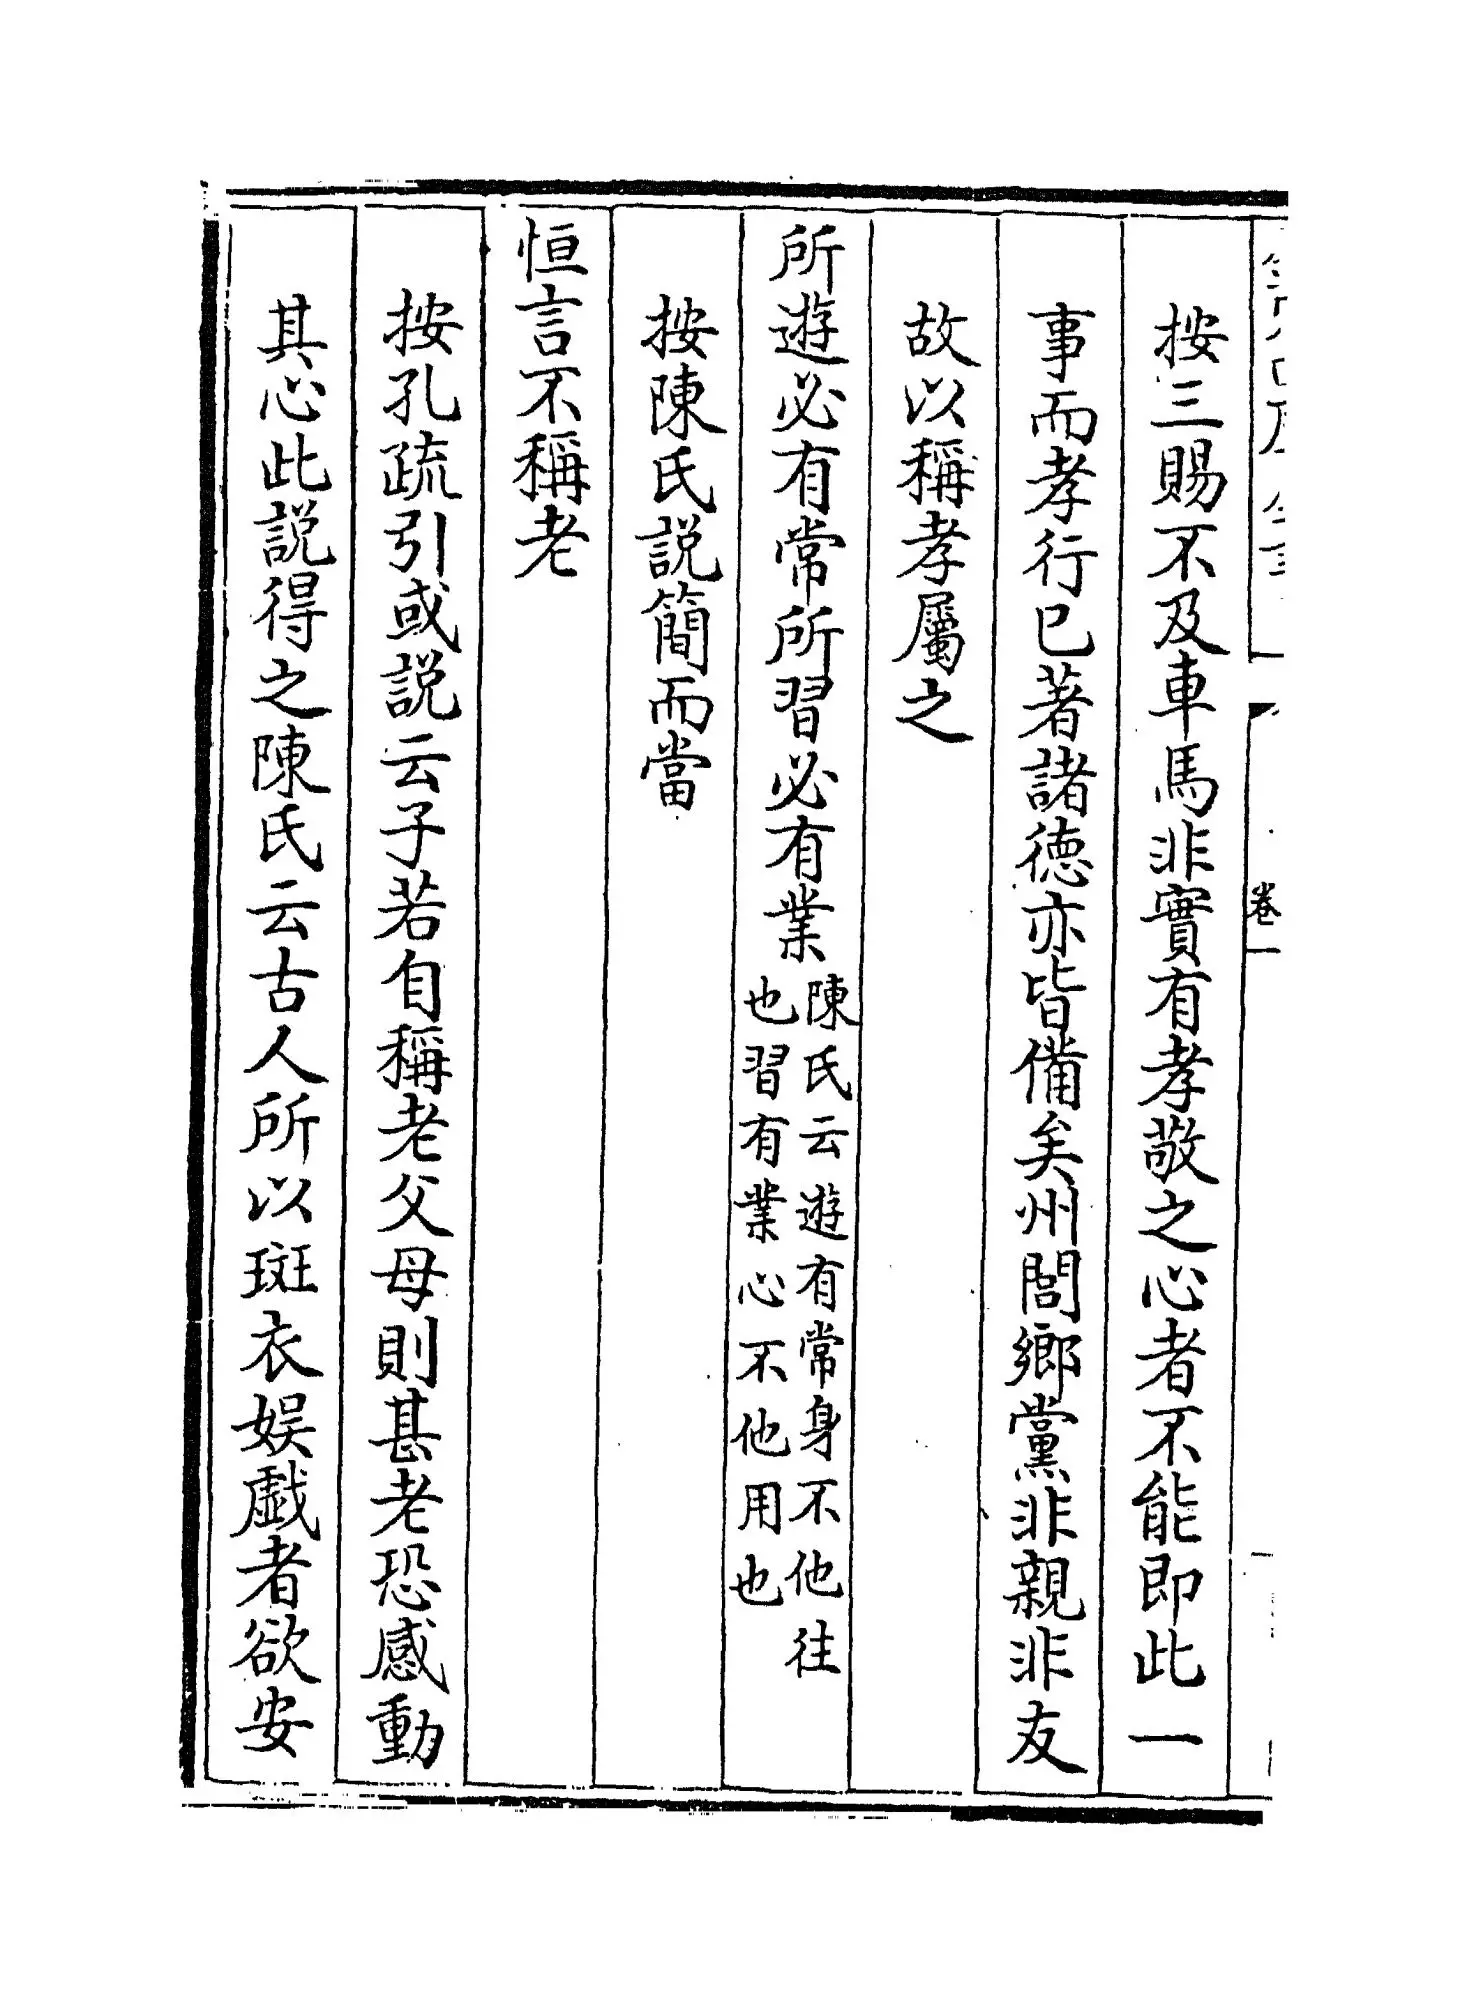 卷一
按三賜不及車馬非實有孝敬之心者不能即此一
事而孝行已著諸德亦皆備矣州閭鄉黨非親非友
故以稱孝屬之
所遊必有常所習必有業陳氏云遊有常身不他往
也習有業心不他用也
按陳氏説簡而當
恒言不稱老
按孔疏引或説云子若自稱老父母則甚老恐感動
其心此説得之陳氏云古人所以斑衣娱戯者欲安